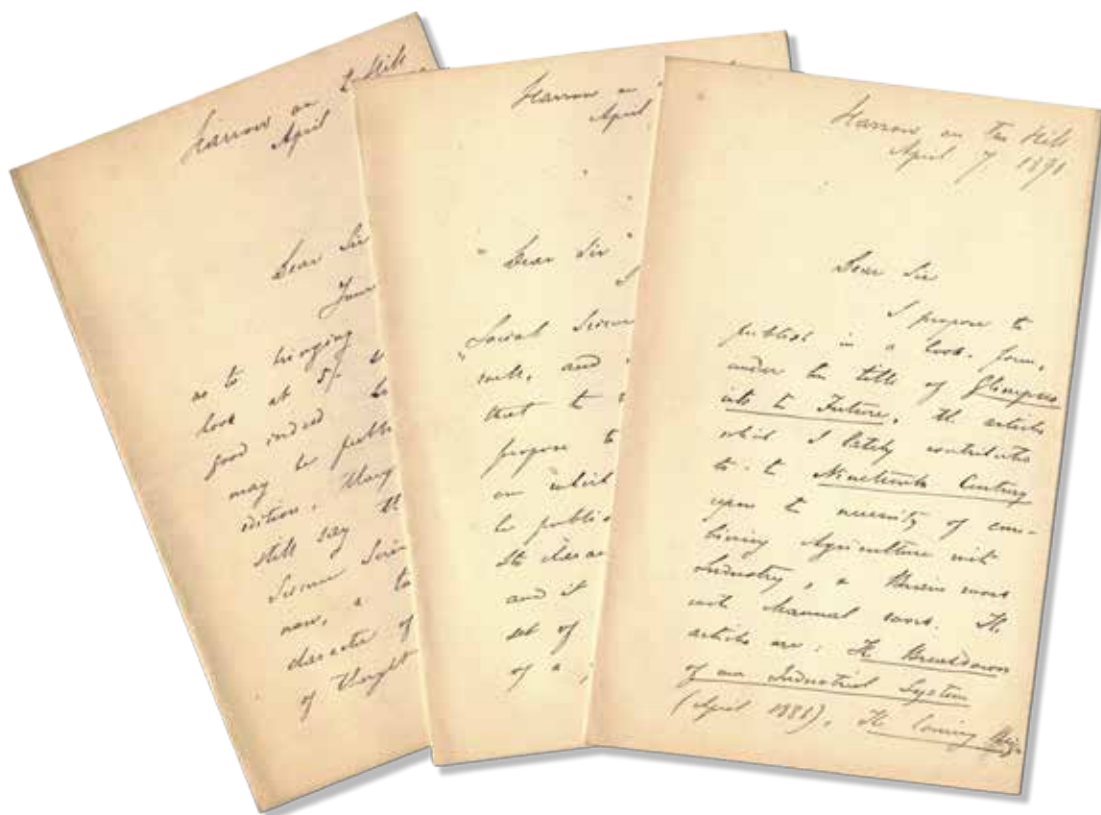 Harrow on t. Hill
April
Dear Sir
Your
as to bringing
book at 5/-
good indeed
may be publi
edition, thoug
still say th
Science Serie
now, a to
character of
of thought
Harrow on
April
"Dear Sir"
I
"Social Scienc
and
that to
propose to
on which
be publis
Its charac
and it
set of
of a
Harrow on the Hill
April 7, 1891
Dear Sir
I propose to
publish in a book-form,
under the title of Glimpses
into t. Future, the articles
which I lately contributed
to t. Nineteenth Century
upon t. necessity of com-
bining Agriculture with
Industry, & Brain work
with Manual work. The
articles are: The Breakdown
of our Industrial System
(April 1888), The Coming Reig-